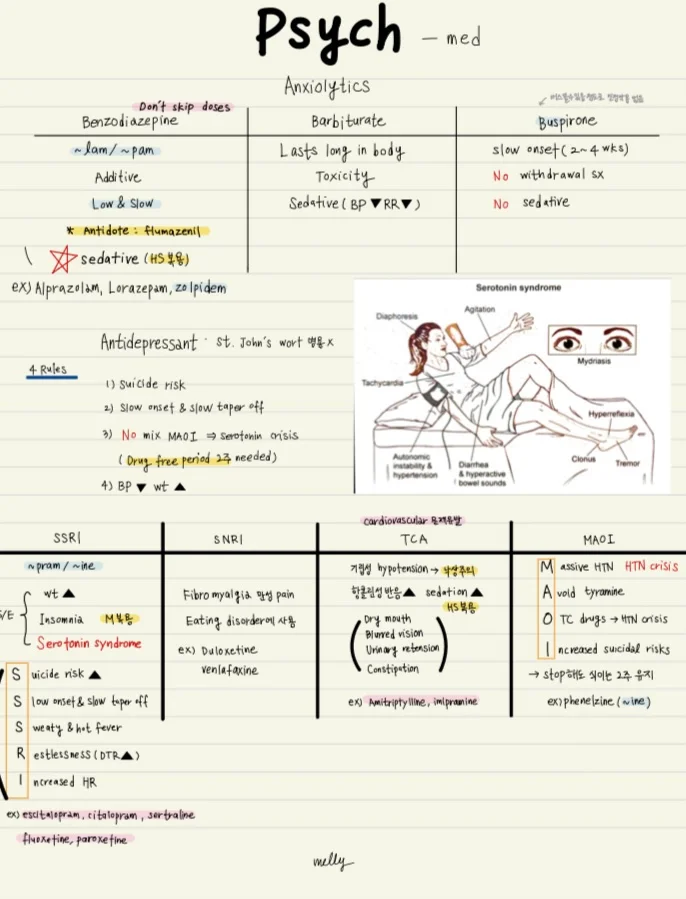 Psych - med
Anxiolytics
Don't skip doses
Benzodiazepine
~lam / ~pam
Additive
Low & Slow
* Antidote : flumazenil
sedative (HS 복용)
ex) Alprazolam, Lorazepam, zolpidem
Barbiturate
Lasts long in body
Toxicity
Sedative ( BP ▼ RR ▼ )
Buspirone
slow onset ( 2~4 wks)
No withdrawal sx
No sedative
Antidepressant · St. John's wort 병용 x
4 Rules
1) Suicide risk
2) Slow onset & slow taper off
3) No mix MAOI ⇒ Serotonin crisis
( Drug free period 2주 needed)
4) BP ▼ wt ▲
Serotonin syndrome
Diaphoresis
Agitation
Mydriasis
Tachycardia
Hyperreflexia
Autonomic
instability &
hypertension
Diarrhea
& hyperactive
bowel sounds
Clonus
Tremor
SSRI
~pram / ~ine
wt ▲
Insomnia M복용
Serotonin syndrome
S uicide risk ▲
S low onset & slow taper off
S weaty & hot fever
R estlessness ( DTR ▲ )
I ncreased HR
ex) escitalopram, citalopram, sertraline
fluoxetine, paroxetine
SNRI
Fibromyalgia 만성 pain
Eating disorder에 사용
ex) Duloxetine
Venlafaxine
cardiovascular 문제유발
TCA
기립성 hypotension → 낙상주의
항콜린성 반응 ▲ sedation ▲
HS 복용
Dry mouth
Blurred vision
Urinary retension
Constipation
ex) Amitriptyline, imipramine
MAOI
M assive HTN HTN crisis
A void tyramine
O TC drugs → HTN crisis
I ncreased suicidal risks
→ stop해도 식이는 2주 유지
ex) phenelzine ( ~ine)
melly